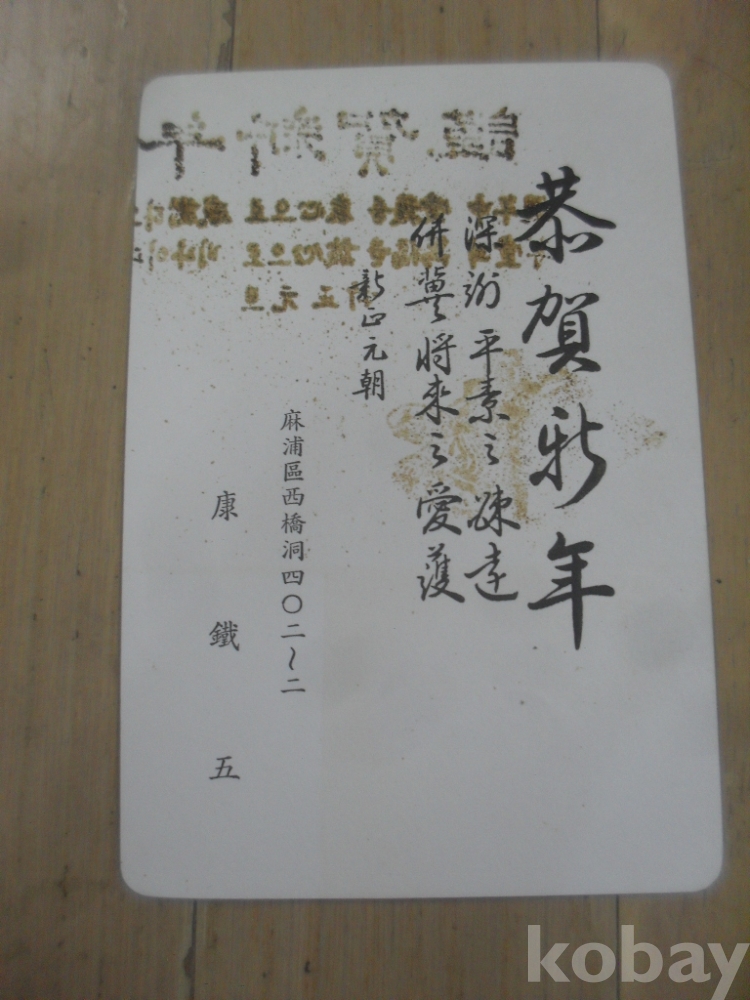 恭賀新年
深謝平素之疎遠
倂冀將來之愛護
新正元朝
麻浦區西橋洞四〇二~二
康鐵五
kobay